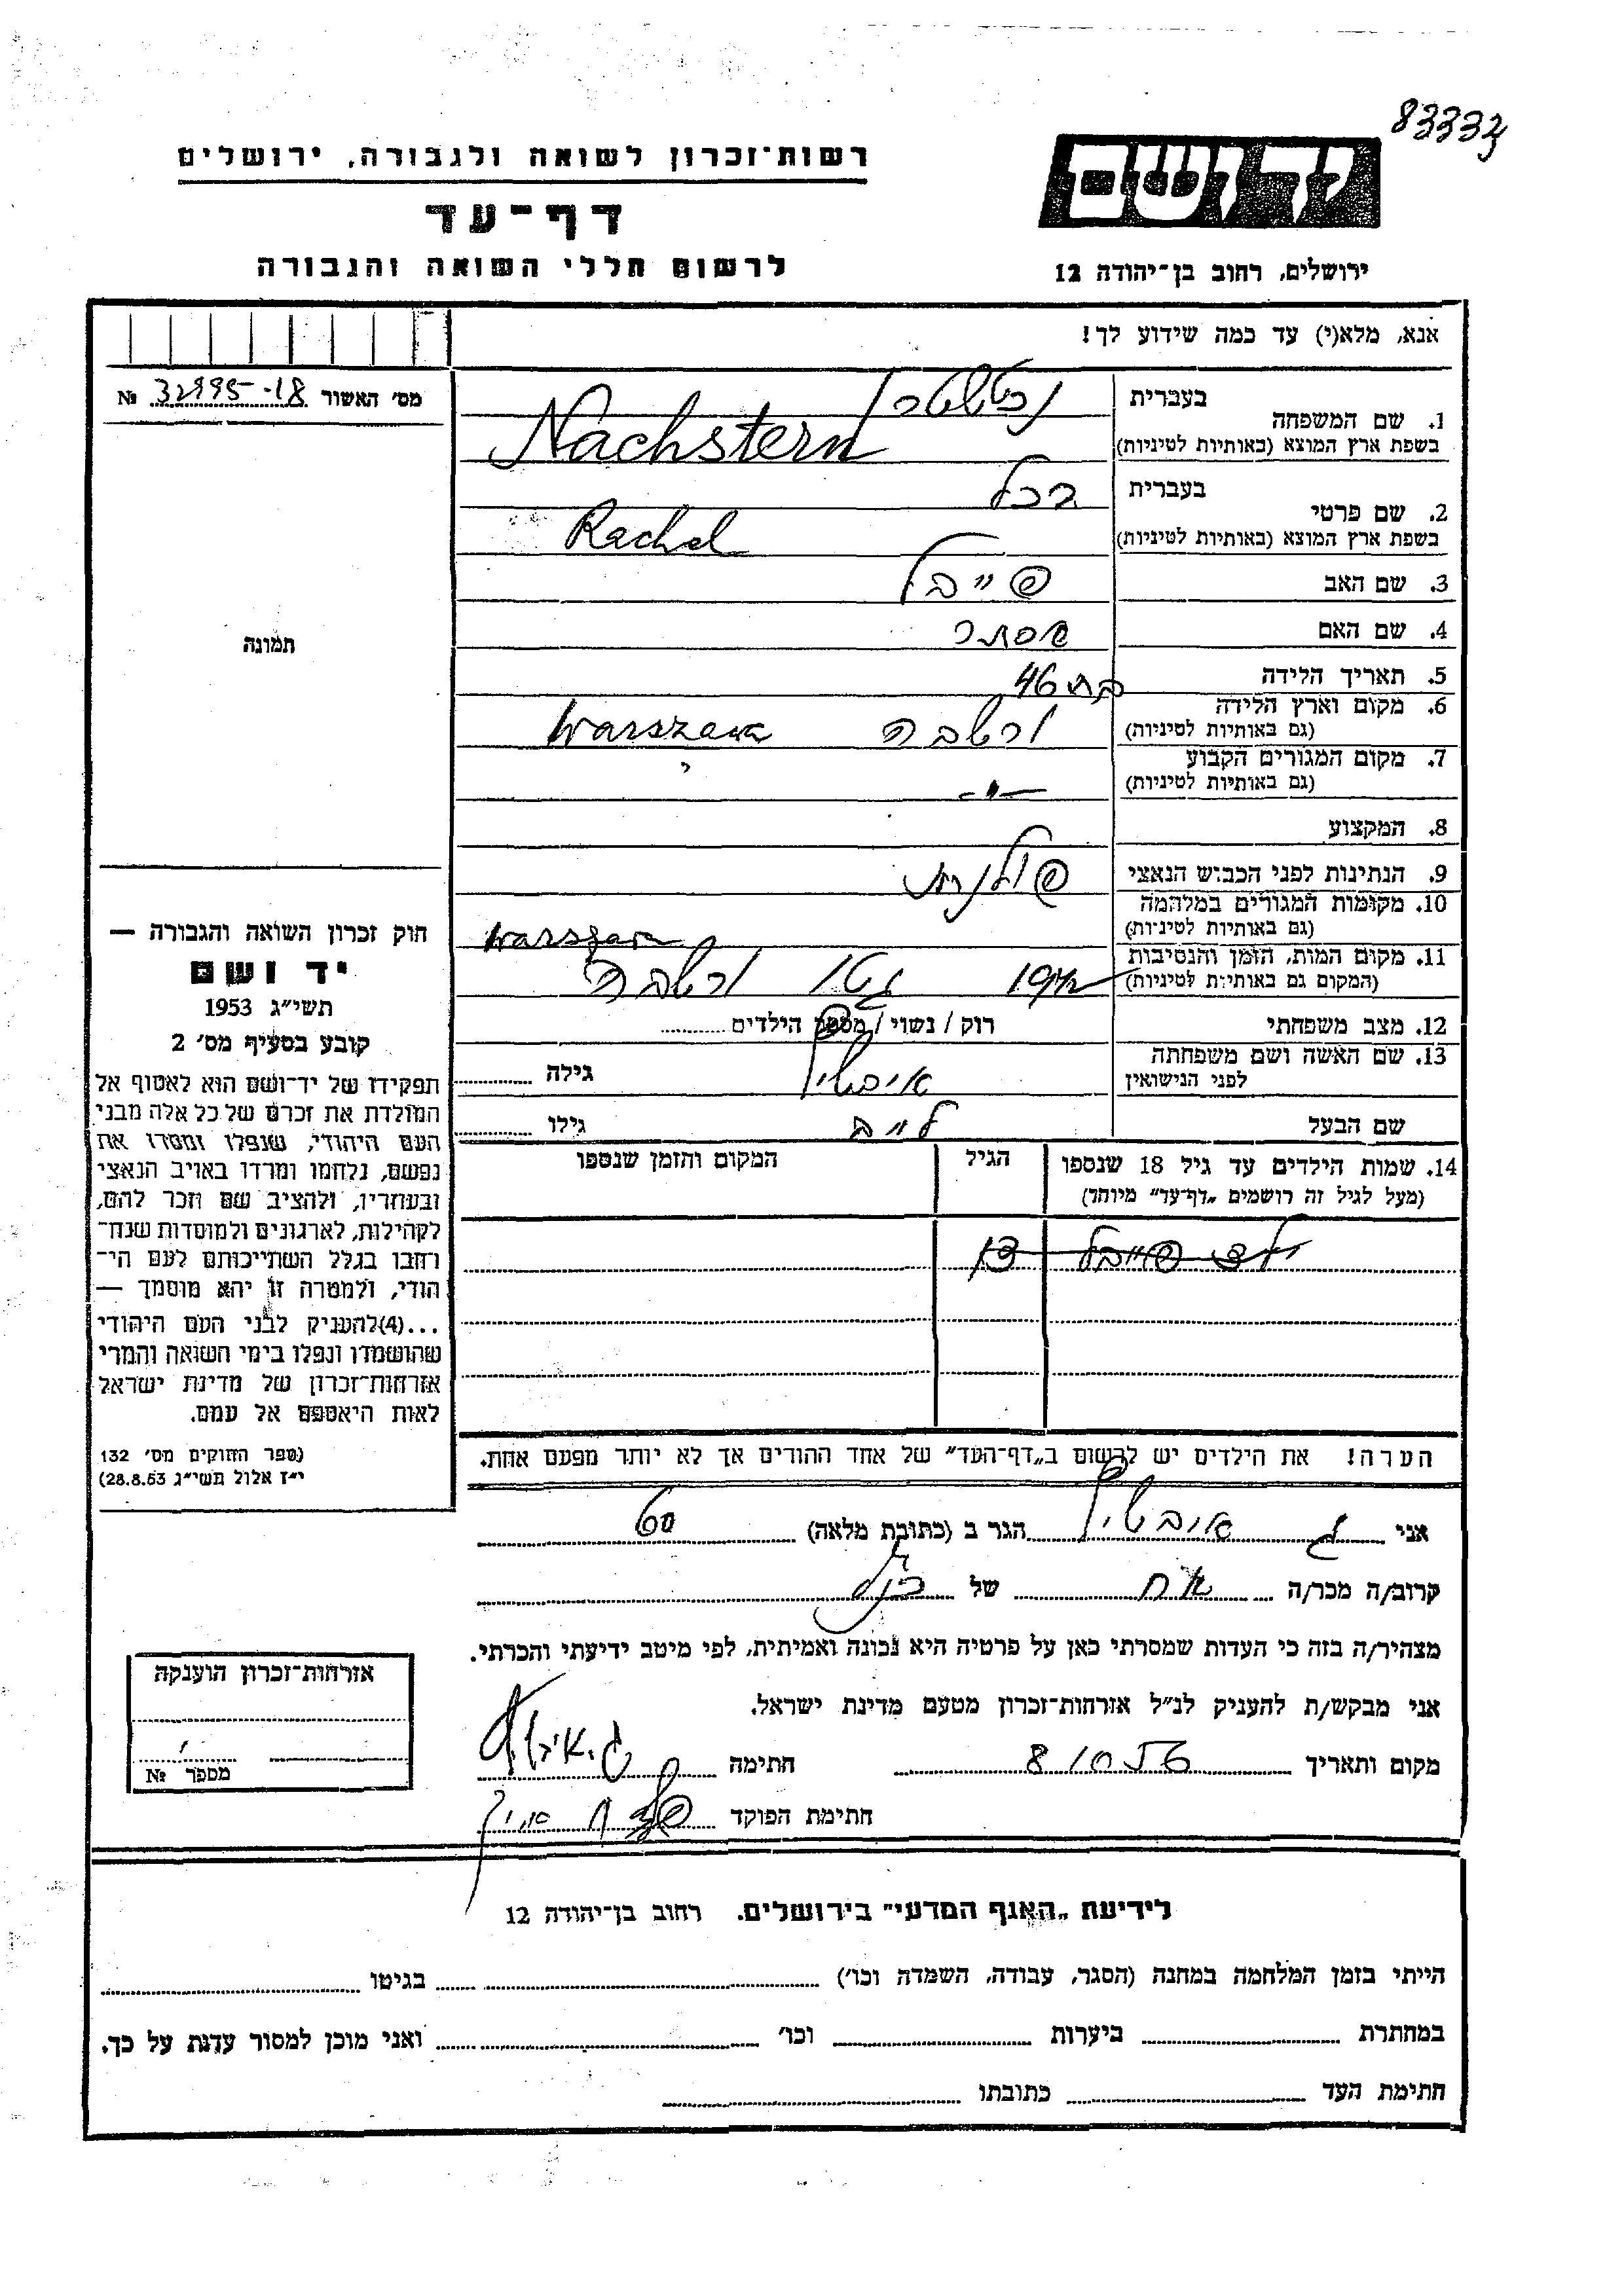 83332
רשות־זכרון לשואה ולגבורה, ירושלים
יד ושם
דף־עד
לרשום חללי השואה והגבורה
ירושלים, רחוב בן־יהודה 12
אנא, מלא(י) עד כמה שידוע לך!
מס' האשור 32995-18 №
תמונה
1. שם המשפחה
בעברית
בשפת ארץ המוצא (באותיות לטיניות) Nachstern
2. שם פרטי
בעברית רכל
בשפת ארץ המוצא (באותיות לטיניות) Rachel
3. שם האב פייבל
4. שם האם אסתר
5. תאריך הלידה בת 46
6. מקום וארץ הלידה
(גם באותיות לטיניות) ורשבה Warszawa
7. מקום המגורים הקבוע
(גם באותיות לטיניות) -"-
8. המקצוע
9. הנתינות לפני הכבוש הנאצי פולנית
10. מקומות המגורים במלחמה
(גם באותיות לטיניות) Warszawa
11. מקום המות, הזמן והנסיבות
(המקום גם באותיות לטיניות) 1942 גטו ורשבה
12. מצב משפחתי רוק / נשוי / מספר הילדים
13. שם האשה ושם משפחתה
לפני הנישואין גילה
שם הבעל גילו
14. שמות הילדים עד גיל 18 שנספו
(מעל לגיל זה רושמים „דף־עד" מיוחד)
הגיל
המקום והזמן שנספו
פייבל
הערה! את הילדים יש לרשום ב„דף־העד" של אחד ההורים אך לא יותר מפעם אחת.
חוק זכרון השואה והגבורה —
יד ושם
תשי״ג 1953
קובע בסעיף מס' 2
תפקידו של יד־ושם הוא לאסוף אל
המולדת את זכרם של כל אלה מבני
העם היהודי, שנפלו ומסרו את
נפשם, נלחמו ומרדו באויב הנאצי
ובעוזריו, ולהציב שם וזכר להם,
לקהילות, לארגונים ולמוסדות שנח־
רבו בגלל השתייכותם לעם הי־
הודי, ולמטרה זו יהא מוסמך —
...(4)להעניק לבני העם היהודי
שהושמדו ונפלו בימי השואה והמרי
אזרחות־זכרון של מדינת ישראל
לאות היאספם אל עמם.
(ספר החוקים מס' 132
י״ז אלול תשי״ג 28.8.53)
אני הגר ב (כתובת מלאה)
קרוב/ה מכר/ה אח של
מצהיר/ה בזה כי העדות שמסרתי כאן על פרטיה היא נכונה ואמיתית, לפי מיטב ידיעתי והכרתי.
אני מבקש/ת להעניק לנ״ל אזרחות־זכרון מטעם מדינת ישראל.
מקום ותאריך 8/10 56 חתימה
חתימת הפוקד
אזרחות־זכרון הוענקה
מספר №
לידיעת „האגף המדעי" בירושלים, רחוב בן־יהודה 12
הייתי בזמן המלחמה במחנה (הסגר, עבודה, השמדה וכו') בגיטו
במחתרת ביערות וכו' ואני מוכן למסור עדות על כך.
חתימת העד כתובתו